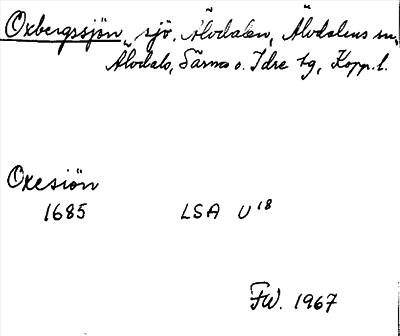 Oxbergssjön, sjö, Älvdalen, Älvdalens sn,
Älvdals, Särna o. Idre tg, Kopp. l.
Oxesiön
1685 LSA U18
FW. 1967